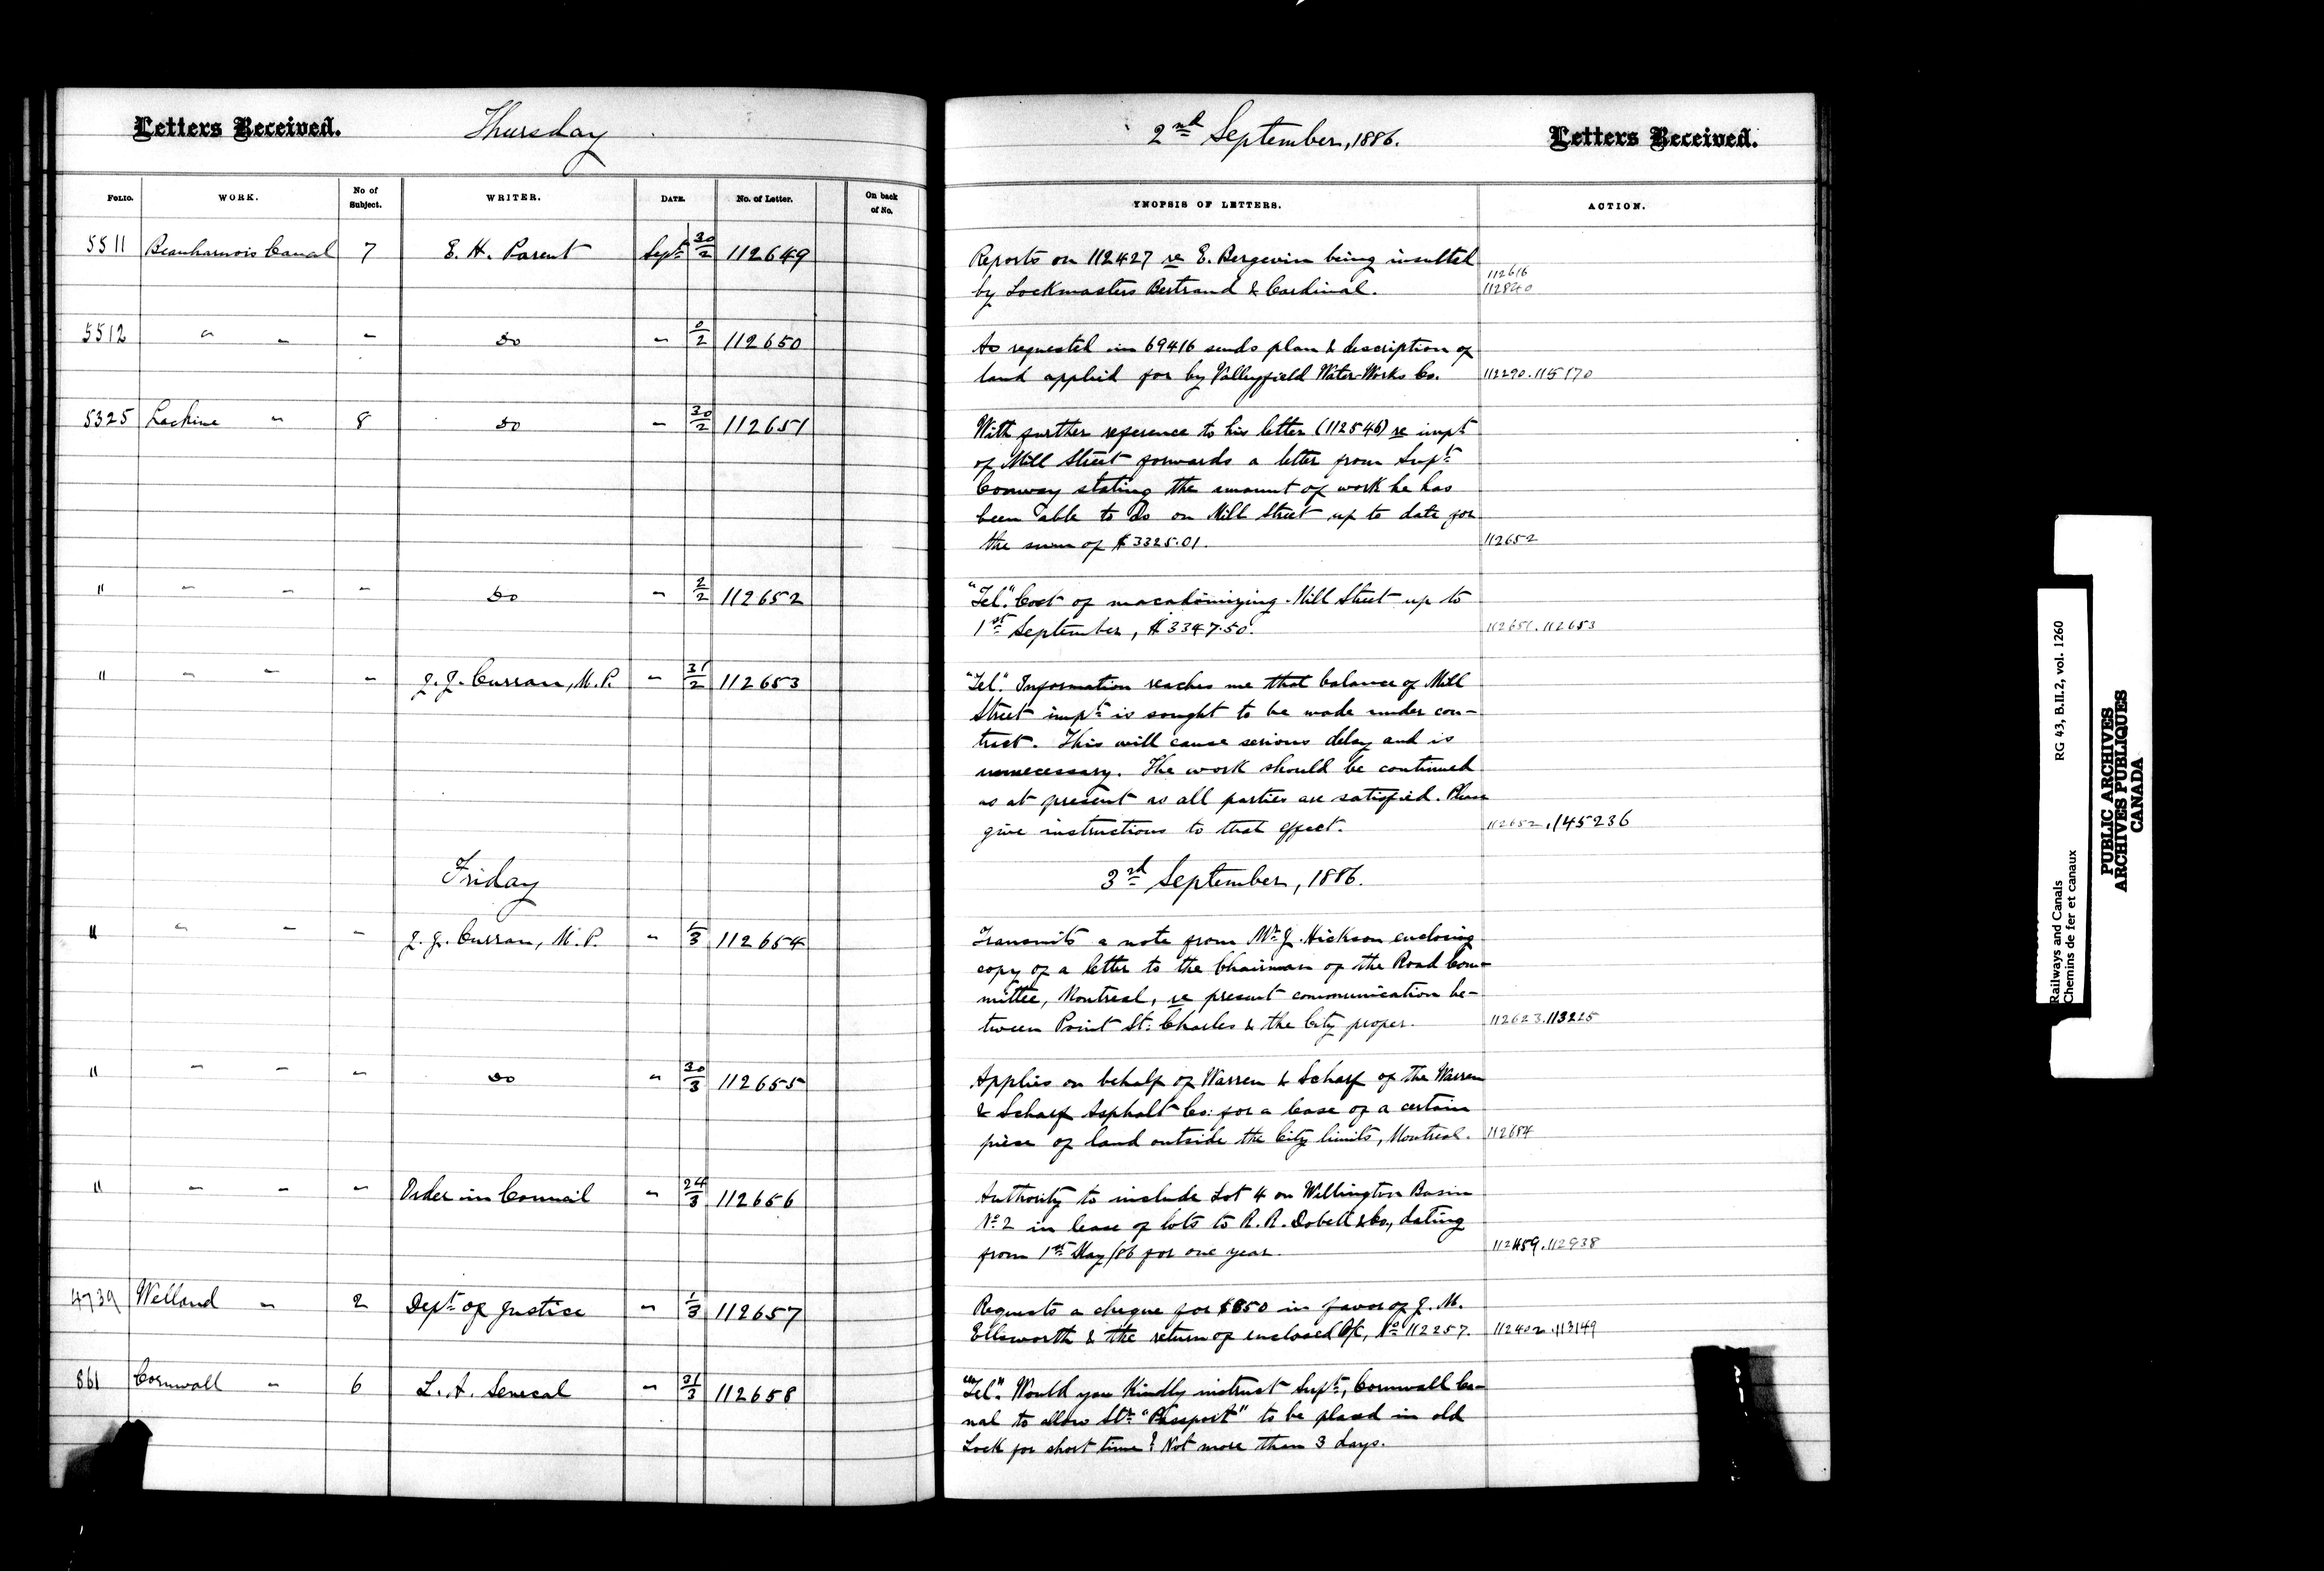 Letters Received. Thursday 2nd September, 1886. Letters Received.
FOLIO. WORK. No of Subject. WRITER. DATE. No. of Letter. On back of No. YNOPSIS OF LETTERS. ACTION.
5511 Beauharnois Canal 7 E. H. Parent Sept 30/2 112649 Reports on 112427 re E. Bergevin being insulted
by Lockmasters Bertrand & Cardinal. 112616 112840
5512 " " " Do " 0/2 112650 As requested in 69416 sends plan & description of
land applied for by Valleyfield Water Works Co. 112290. 115170
5325 Lachine " 8 Do " 30/2 112651 With further reference to his letter (112546) re impt
of Mill Street forwards a letter from Supt
Conway stating the amount of work he has
been able to do on Mill Street up to date for
the sum of $3325.01. 112652
" " " " Do " 2/2 112652 "Tel." Cost of macadamizing Mill Street up to
1st September, $3347.50. 112651. 112653
" " " " J. J. Curran, M.P. " 31/2 112653 "Tel." Information reaches me that balance of Mill
Street impt is sought to be made under con-
tract. This will cause serious delay and is
unnecessary. The work should be continued
as at present as all parties are satisfied. Please
give instructions to that effect. 112652. 145236
Friday 3rd September, 1886.
" " " " J. J. Curran, M.P. " 1/3 112654 Transmits a note from Mr J. Hickson enclosing
copy of a letter to the Chairman of the Road Com-
mittee, Montreal, re present communication be-
tween Point St. Charles & the City proper. 112623. 113225
" " " " Do " 30/3 112655 Applies on behalf of Warren & Scharf of the Warren
& Scharf Asphalt Co: for a lease of a certain
piece of land outside the City limits, Montreal. 112684
" " " " Order in Council " 24/3 112656 Authority to include Lot 4 on Wellington Basin
No 2 in lease of lots to R. R. Dobell & Co., dating
from 1st May/86 for one year. 112459. 112938
4739 Welland " 2 Dept of Justice " 1/3 112657 Requests a cheque for $850 in favor of J. M.
Ellsworth & the return of enclosed O/C, No 112257. 112402. 113149
861 Cornwall " 6 L. A. Senecal " 31/3 112658 "Tel." Would you kindly instruct Supt, Cornwall Ca-
nal to allow Str "Passport" to be placed in old
Lock for short time? Not more than 3 days.
Railways and Canals RG 43, B.II.2, vol. 1260
Chemins de fer et canaux
PUBLIC ARCHIVES
ARCHIVES PUBLIQUES
CANADA